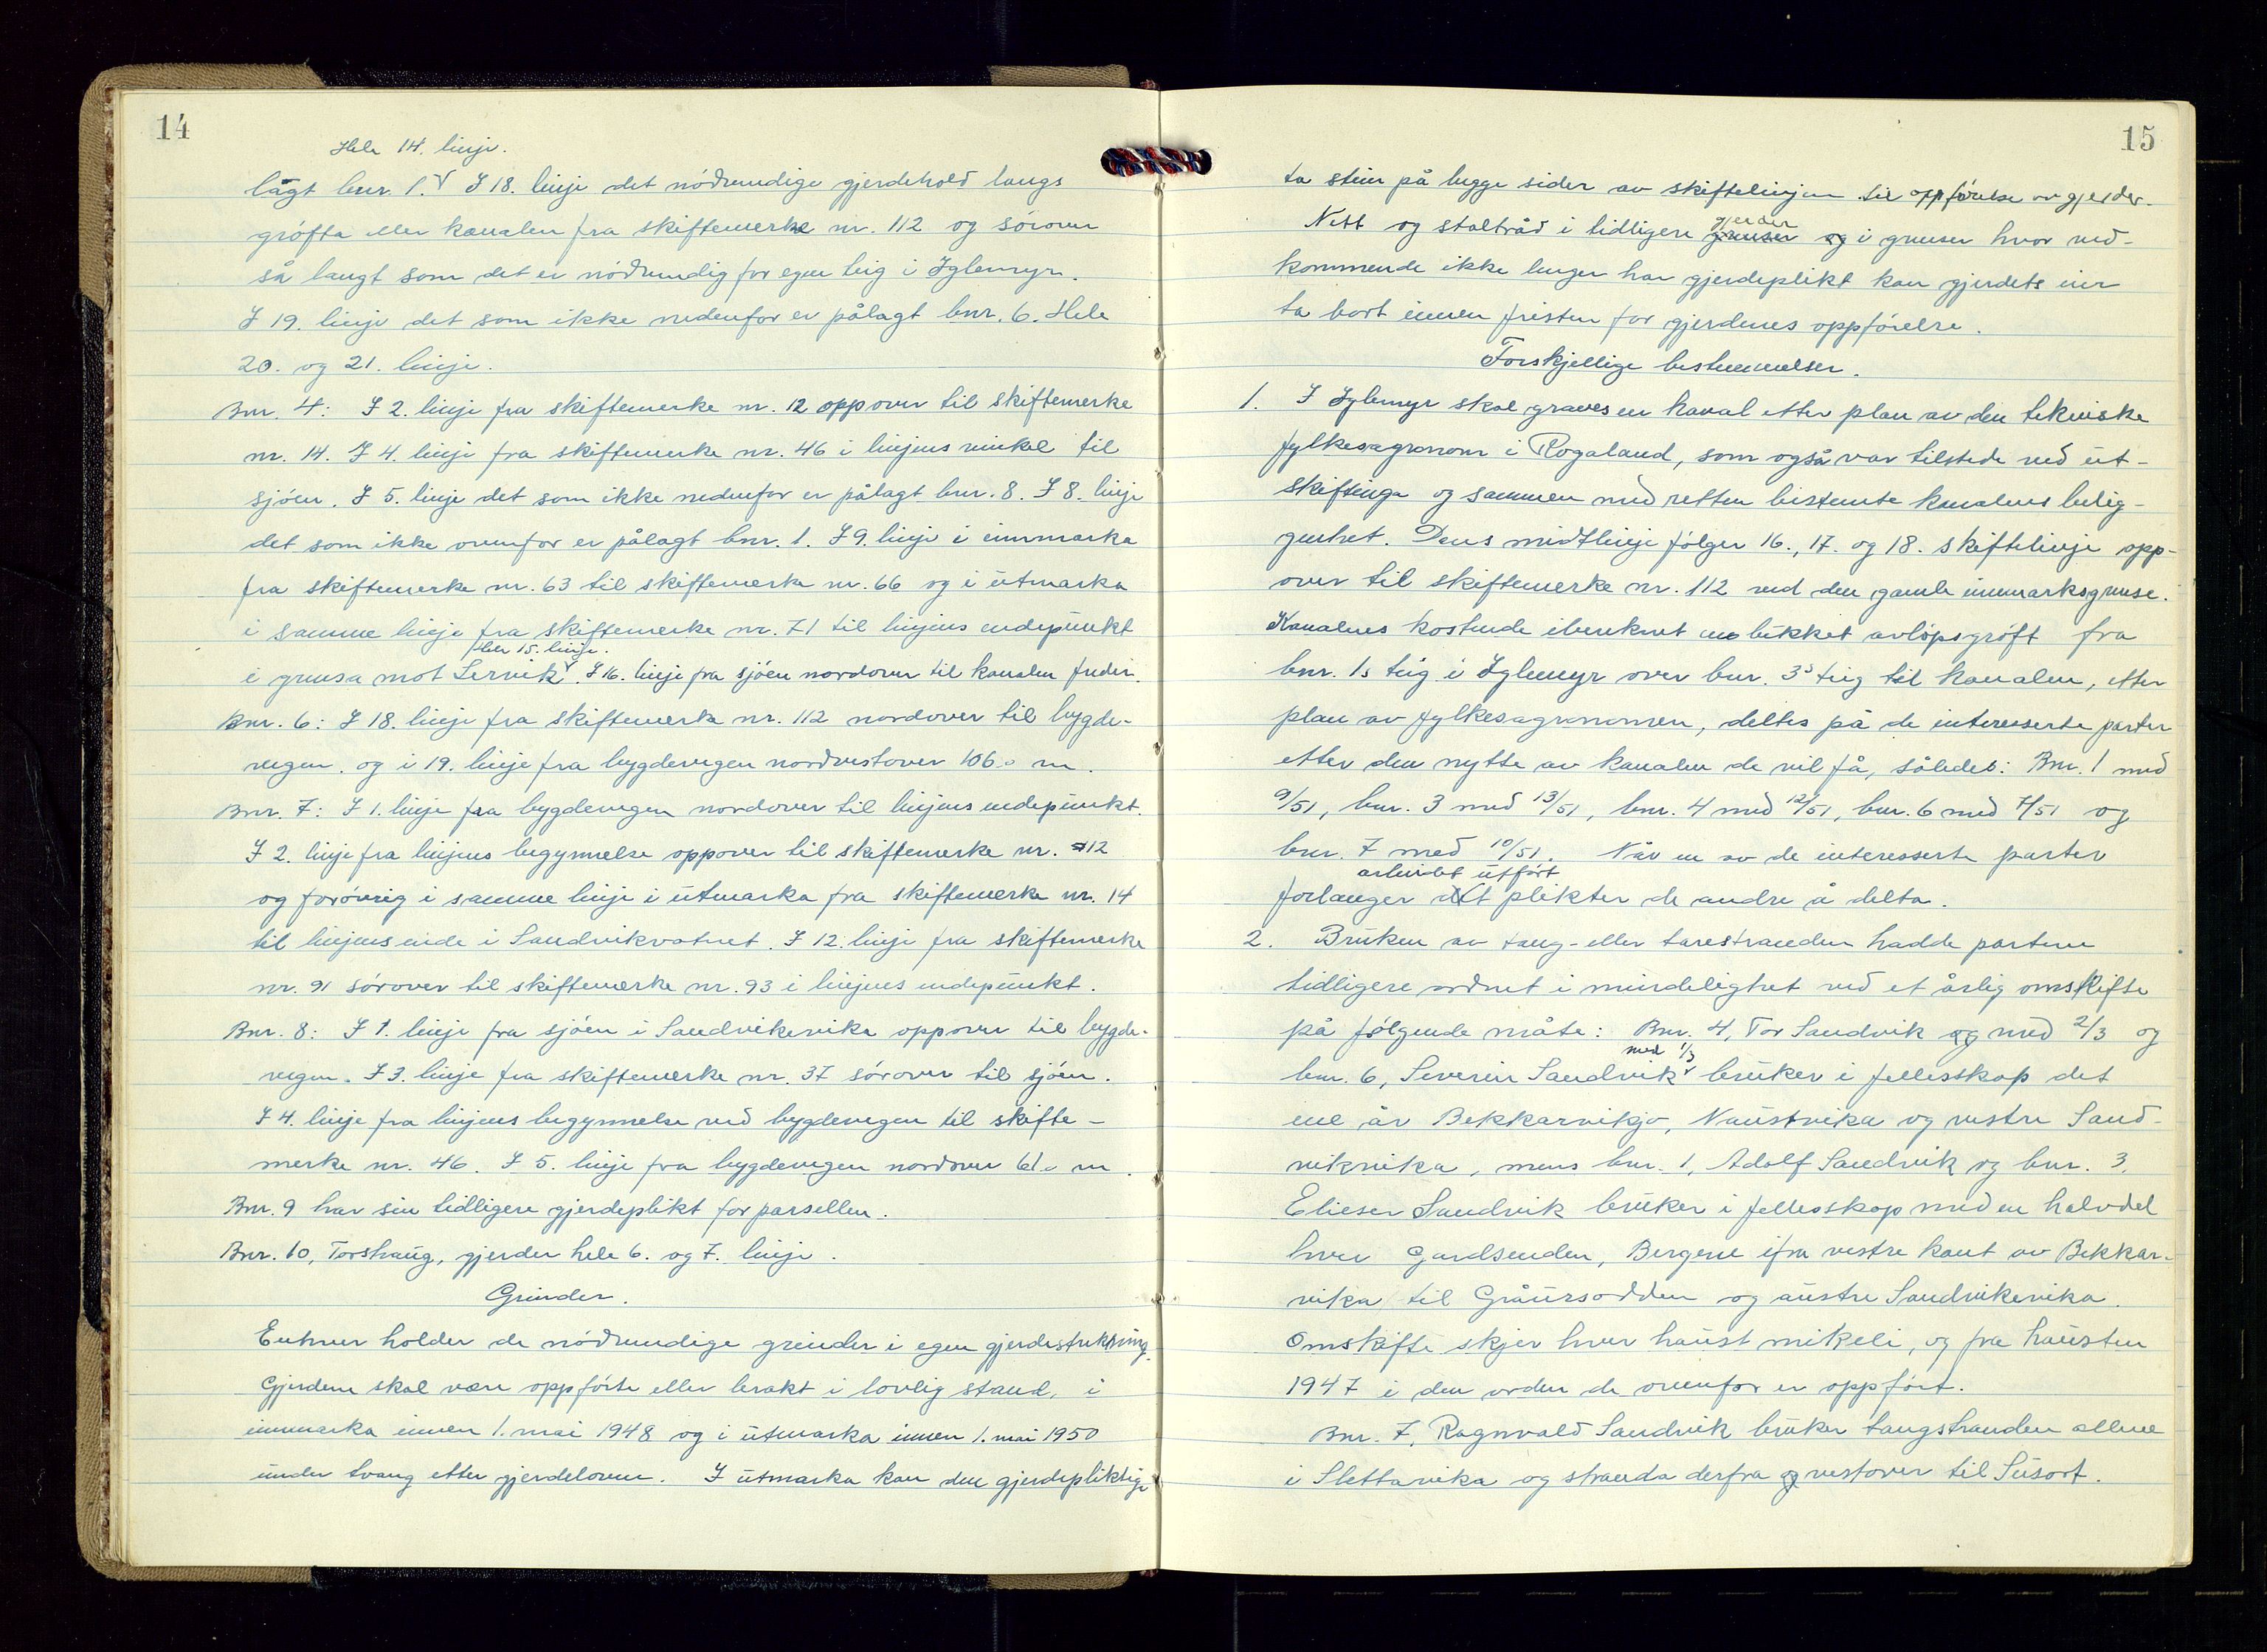 14
Hele 14. linje.
lagt bnr. 1. V I 18. linje det nödvendige gjerdehold langs
gröfta eller kanalen fra skiftemerke nr. 112 og sörover
så langt som det er nödvendig for egen teig i Iglemyr.
I 19. linje det som ikke nedenfor er pålagt bnr. 6. Hele
20. og 21. linje.
Bnr. 4: I 2. linje fra skiftemerke nr. 12 oppover til skiftemerke
nr. 14. I 4. linje fra skiftemerke nr. 46 i linjens vinkel til
sjöen. I 5. linje det som ikke nedenfor er pålagt bnr. 8. I 8. linje
det som ikke ovenfor er pålagt bnr. 1. I 9. linje i innmarka
fra skiftemerke nr. 63 til skiftemerke nr. 66 og i utmarka
i samme linje fra skiftemerke nr. 71 til linjens endepunkt
Hele 15. linje.
i grensa mot Lervik V. I 16. linje fra sjöen nordover til kanalen
Bnr. 6: I 18. linje fra skiftemerke nr. 112 nordover til bygde-
vegen. og i 19. linje fra bygdevegen nordvestover 106.0 m.
Bnr. 7: I 1. linje fra bygdevegen nordover til linjens endepunkt.
I 2. linje fra linjens begynnelse oppover til skiftemerke nr. 12
og forövrig i samme linje i utmarka fra skiftemerke nr. 14
til linjens ende i Sandvikvatnet. I 12. linje fra skiftemerke
nr. 91 sörover til skiftemerke nr. 93 i linjens endepunkt.
Bnr. 8: I 1. linje fra sjöen i Sandvikevika oppover til bygde-
vegen. I 3. linje fra skiftemerke nr. 37 sörover til sjöen.
I 4. linje fra linjens begynnelse ved bygdevegen til skifte-
merke nr. 46. I 5. linje fra bygdevegen nordover 61.0 m.
Bnr. 9 har sin tidligere gjerdeplikt for parsellen.
Bnr. 10, Torshaug, gjerder hele 6. og 7. linje.
Grinder.
Enhver holder de nödvendige grinder i egen gjerdestrekning.
Gjerdene skal være oppförte eller brakt i lovlig stand, i
innmarka innen 1. mai 1948 og i utmarka innen 1. mai 1950
under tvang etter gjerdeloven. I utmarka kan den gjerdepliktige
15
ta stein på begge sider av skiftelinjen til oppförelse av gjerder.
gjerder
Nett og ståltråd i tidligere grenser og i grenser hvor ved-
kommende ikke lenger har gjerdeplikt kan gjerdets eier
ta bort innen fristen for gjerdenes oppförelse.
Forskjellige bestemmelser.
1. I Iglemyr skal graves en kanal etter plan av den tekniske
fylkesagronom i Rogaland, som også var tilstede ved ut-
skiftinga og sammen med retten bestemte kanalens belig-
genhet. Dens midtlinje fölger 16., 17. og 18. skiftelinje opp-
over til skiftemerke nr. 112 ved den gamle innmarksgrense.
Kanalens kostende ibereknet en lukket avlöpsgröft fra
bnr. 1s teig i Iglemyr over bnr. 3s teig til kanalen, etter
plan av fylkesagronomen, deltes på de interesserte parter
etter den nytte av kanalen de vil få, således: Bnr. 1 med
9/51, bnr. 3 med 13/51, bnr. 4 med 12/51, bnr. 6 med 7/51 og
bnr. 7 med 10/51. Når en av de interesserte parter
arbeidet utfört
forlanger det plikter de andre å delta.
2. Bruken av tang- eller tarestranden hadde partene
tidligere ordnet i mindelighet ved et årlig omskifte
på fölgende måte: Bnr. 4, Tor Sandvik og med 2/3 og
med 1/3
bnr. 6, Severin Sandvik V bruker i fellesskap det
ene år Bekkarvikjo, Naustvika og vestre Sand-
vikvika, mens bnr. 1, Adolf Sandvik og bnr. 3,
Elieser Sandvik bruker i fellesskap med en halvdel
hver Gardsenden, Bergene ifra vestre kant av Bekkar-
vika til Gråursodden og austre Sandvikevika.
Omskifte skjer hver haust mikeli, og fra hausten
1947 i den orden de ovenfor er oppfört.
Bnr. 7, Ragnvald Sandvik bruker tangstranden allene
i Slettavika og stranda derfra og vestover til Susort.